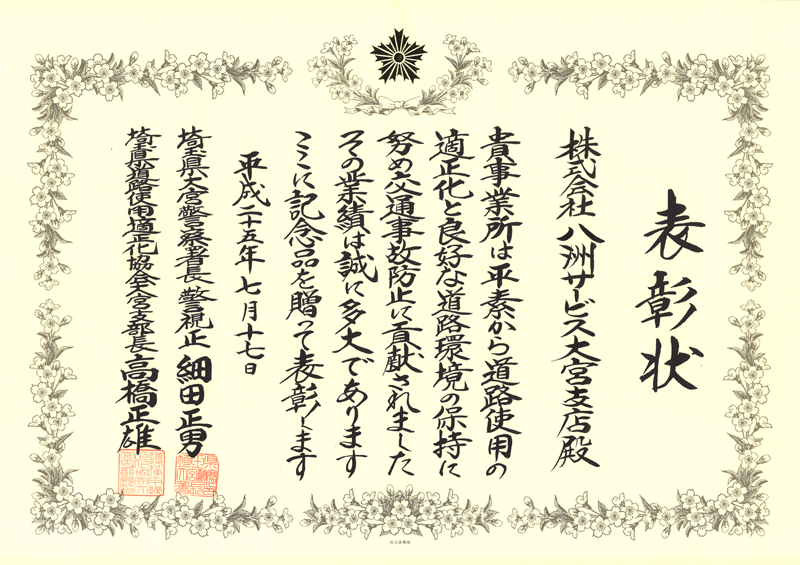 表彰状
株式会社 八洲サービス大宮支店殿
貴事業所は平素から道路使用の
適正化と良好な道路環境の保持に
努め交通事故防止に貢献されました
その業績は誠に多大であります
ここに記念品を贈って表彰します
平成二十五年七月十七日
埼玉県大宮警察署長 警視正 細田正男
埼玉県道路使用適正化協会大宮支部長 高橋正雄